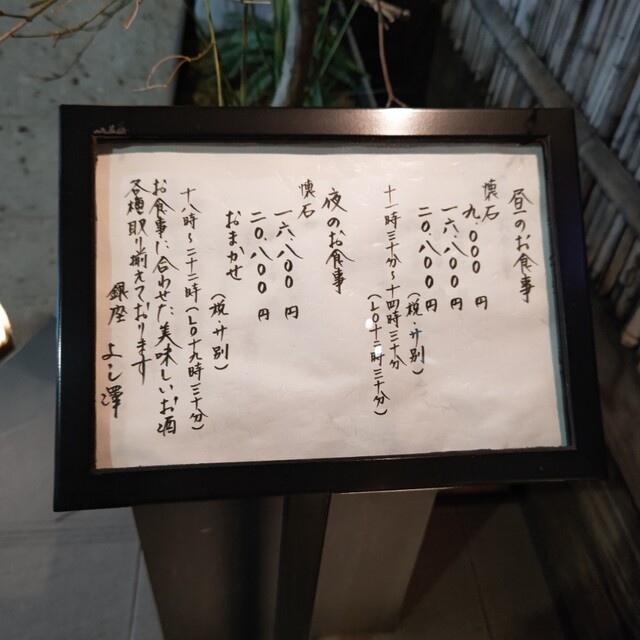 昼のお食事
懐石
九.000 円
一六.八00 円
二0.八00 円
(税・サ別)
十一時三十分〜十四時三十分
(LO十三時三十分)
夜のお食事
懐石
一六.八00 円
二0.八00 円
おまかせ
(税・サ別)
十八時〜二十二時(LO十九時三十分)
お食事に合わせた美味しいお酒
各種取り揃えております
銀座 よし澤